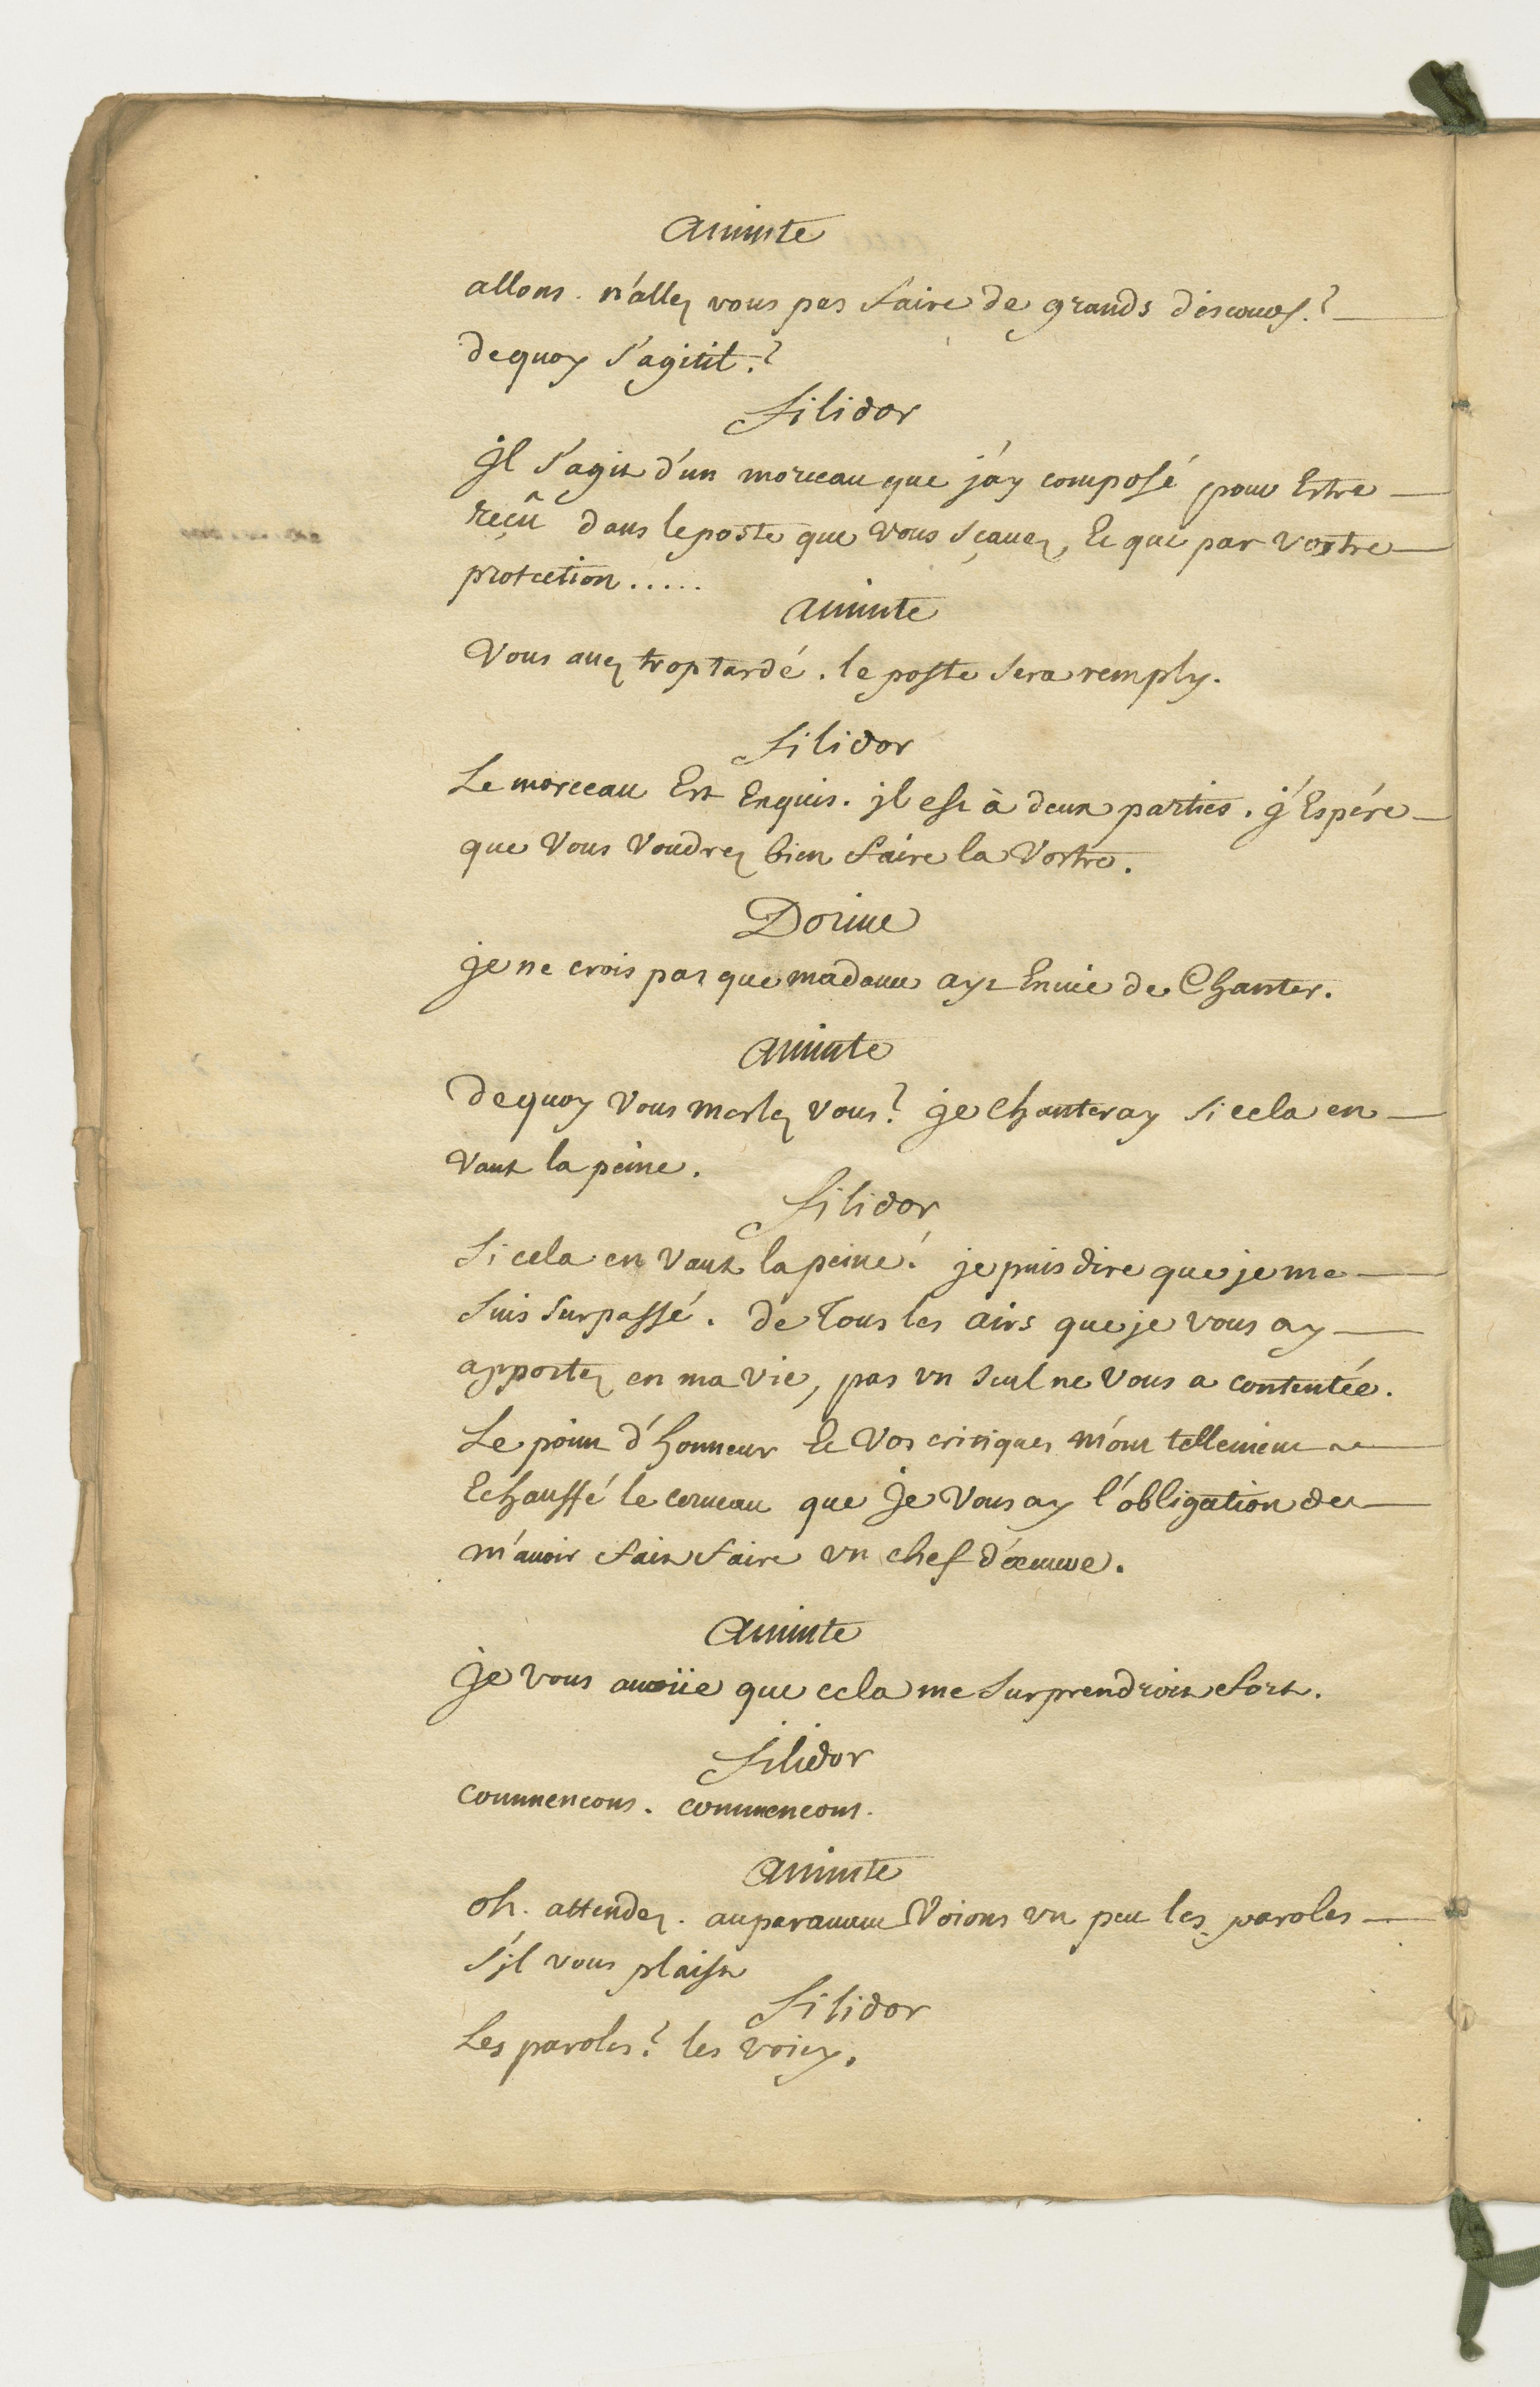 Aminte
allons. n'allez vous pas faire de grands discours.?
dequoy s'agitil.?
Filidor
jl s'agit d'un morceau que j'ay composé pour Estre
reçû dans le poste que vous sçauez, Et que par vostre
protection.....
Aminte
Vous auez trop tardé. le poste sera remply.
Filidor
Le morceau Est Exquis. jl est à deux parties. j'Espére
que Vous Voudrez bien faire la Vostre.
Dorine
je ne crois pas que madame ayt Enuie de Chanter.
Aminte
dequoy Vous meslez vous? je Chanteray si cela en
Vaut la peine.
Filidor
Si cela en Vaut la peine! je puis dire que je me
suis surpassé. de Tous les airs que je vous ay
apportez en ma vie, pas vn seul ne Vous a contentée.
Le point d'honneur Et Vos critiques m'ont tellement
Echauffé le cerueau que je Vous ay l'obligation de
m'auoir fait faire vn chef d'œuure.
Aminte
je vous auoüe que cela me surprendroit fort.
Filidor
commencons. commencons.
Aminte
oh. attendez. auparauant Voions vn peu les paroles
s'jl vous plaist
Filidor
Les paroles? les voicy.